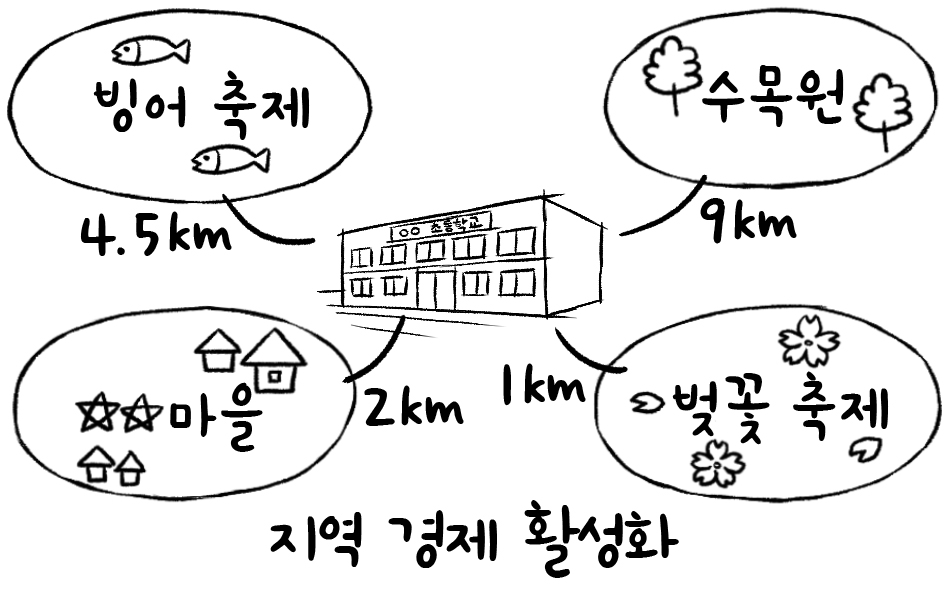 빙어 축제
수목원
4.5km
9km
○○ 초등학교
☆☆마을
2km
1km
벚꽃 축제
지역 경제 활성화